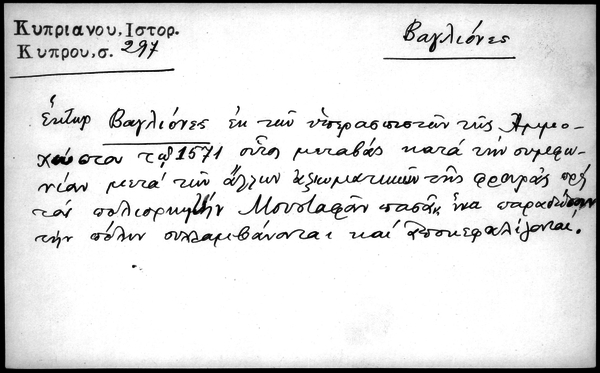 Κυπριανου, Ιστορ.
Κυπρου, σ. 297
Βαγλιόνες
Έκτωρ Βαγλιόνες ἐκ τῶν ὑπερασπιστῶν τῆς Ἀμμο-
χώστου τῷ 1571 οὗτος μεταβάς κατά την συμφω-
νίαν μετά τῶν ἄλλων ἀξιωματικῶν τῆς φρουρᾶς πρός
τόν πολιορκητήν Μουσταφᾶν πασᾶν, ἵνα παραδώσουν
τήν πόλιν συλλαμβάνονται καί ἀποκεφαλίζονται.